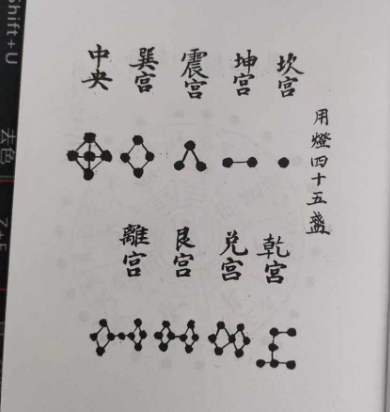 用燈四十五盞
坎宮
坤宮
震宮
巽宮
中央
乾宮
兌宮
艮宮
離宮
Shift+U
去色